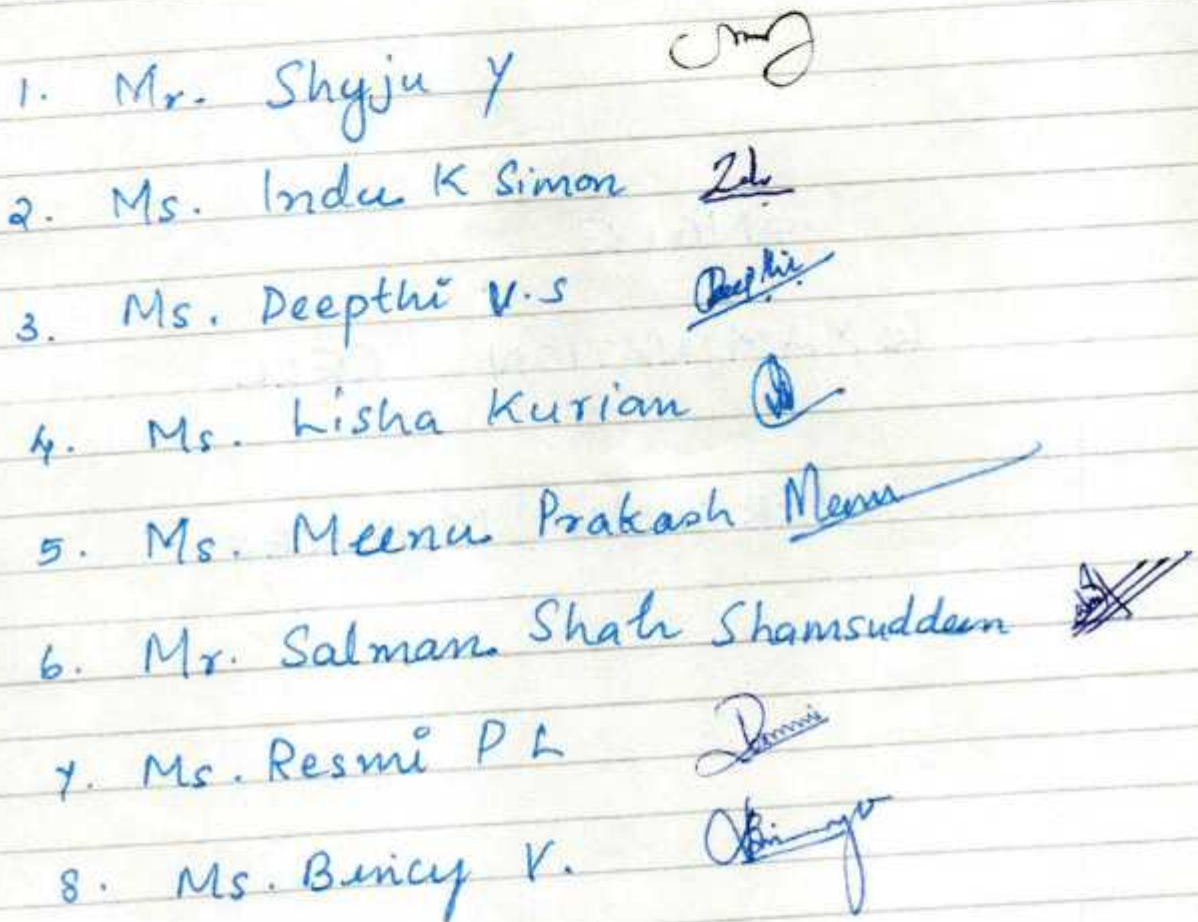 1. Mr. Shyju Y
2. Ms. Indu K Simon
3. Ms. Deepthi V.S Deepthi
4. Ms. Lisha Kurian
5. Ms. Meenu Prakash Meenu
6. Mr. Salman Shah Shamsuddeen
7. Ms. Resmi P L
8. Ms. Bincy V.